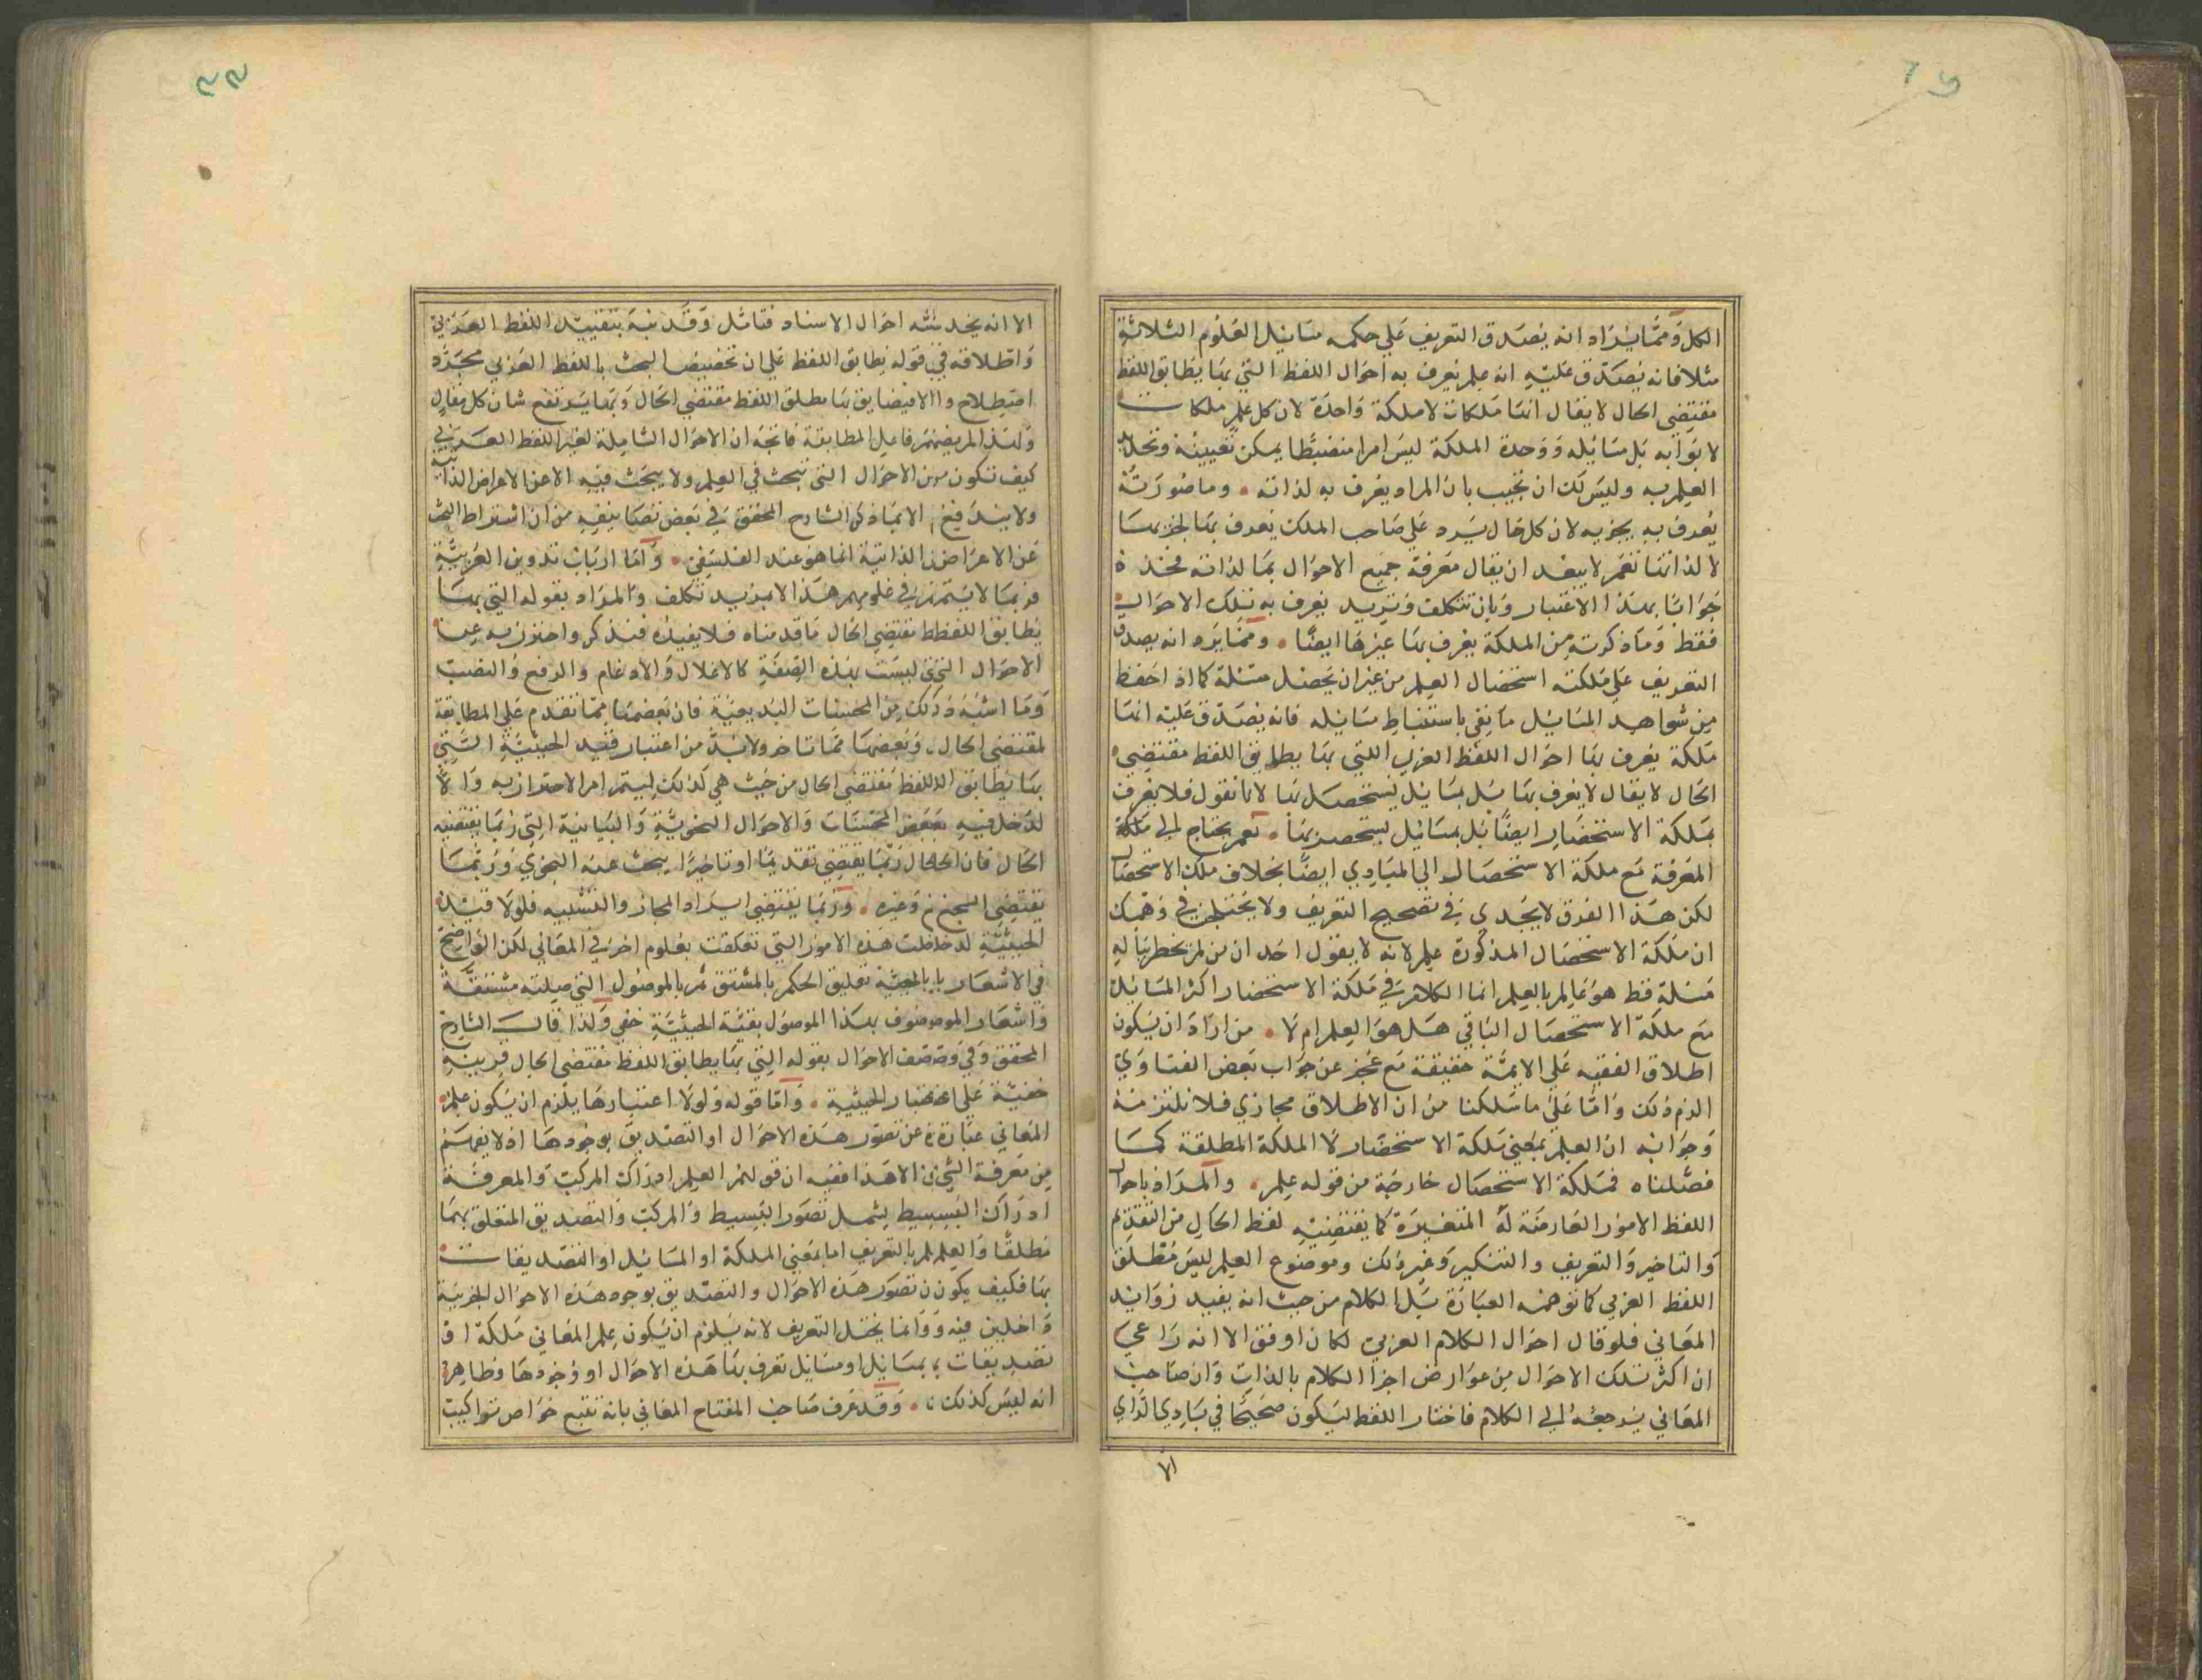 الكل ومما يزاد انه يصدق التعريف على حكمه مسائيل العلوم الثلاثة
مثلا فانه يصدق عليه انه علم يعرف به احوال اللفظ التي بها يطابق اللفظ
مقتضى الحال لا يقال انها ملكات لا ملكة واحدة لان كل علم ملكات
لا بوابه بل مسائله ووحدة الملكة ليس امرا منضبطا يمكن تعيينه وتحديد
العلم به وليس لك ان تجيب بان المراد يعرف به لذاته وما صورته
يعرف به بجزيه لان كل حال يرد على صاحب الملكة يعرف بها بجزيها
لا لذاتها نعم لا يبعد ان يقال معرفة جميع الاحوال بها لذاته فخذه
جوابا بهذا الاعتبار وبان تتكلف وتريد يعرف به تلك الاحوال
فقط وما ذكرته من الملكة يعرف بها غيرها ايضا ومما يرد انه يصدق
التعريف على ملكته استحصال العلم من غير ان يحصل مسئلة كما اذا حفظ
من شواهد المسائل ما يفي باستنباط مسائله فانه يصدق عليه انها
ملكة يعرف بها احوال اللفظ العربي اللتي بها يطابق اللفظ مقتضى
الحال لا يقال لا يعرف بها بل بمسائل يستحصل بها لانا نقول فلا يعرف
بملكة الاستحضار ايضا بل بمسائل يستحصر بها نعم يحتاج الى ملكة
المعرفة مع ملكة الاستحصال الى المبادي ايضا بخلاف ملكة الاستحصال
لكن هذا الفرق لا يجدي في تصحيح التعريف ولا يختلجن في وهمك
ان ملكة الاستحصال المذكورة علم لانه لا يقول احد ان من لم يخطر بباله
مسئلة قط هو عالم بالعلم انما الكلام في ملكة الاستحضار اكثر المسائل
مع ملكة الاستحصال الباقي هل هو العلم ام لا من اراد ان يكون
اطلاق الفقيه على الايمة حقيقة مع عجز عن جواب بعض الفتاوي
الزم ذلك واما على ما سلكنا من ان الاطلاق مجازي فلا نلتزمه
وجوابه ان العلم بمعنى ملكة الاستحضار لا الملكة المطلقة كما
فصلناه فملكة الاستحصال خارجة من قوله علم والمراد باحوال
اللفظ الامور العارضة له المتغيرة كما يقتضيه لفظ الحال من التقديم
والتاخير والتعريف والتنكير وغير ذلك وموضوع العلم ليس مطلق
اللفظ العربي كما توهمه العبارة بل الكلام من حيث انه يفيد زوايد
المعاني فلو قال احوال الكلام العربي لكان اوفق الا انه راعى
ان اكثر تلك الاحوال من عوارض اجزا الكلام بالذات وان صاحب
المعاني يرجعه الى الكلام فاختار اللفظ ليكون صحيحا في بادي الراي
الا
الا انه يخدشه احوال الاسناد فتامل وقد نبه بتقييد اللفظ العربي
واطلاقه في قوله يطابق اللفظ على ان تخصيص البحث باللفظ العربي مجرد
اصطلاح والا فيضا يق بها مطلق اللفظ مقتضى الحال وبها يرتفع شان كل مقال
ولذا لم يضمر فاعل المطابقة فاتجه ان الاحوال الشاملة لغير اللفظ العربي
كيف تكون من الاحوال التي تبحث في العلم ولا يبحث فيه الا عن الاعراض الذاتية
ولا يندفع الا بما ذكر الشارح المحقق في بعض تصانيفه من ان اشتراط البحث
عن الاعراض الذاتية انما هو عند الفلسفي واما ارباب تدوين العربية
فربما لا يتم في علومهم هذا الا بمزيد تكلف والمراد بقوله التي بها
يطابق اللفظ مقتضى الحال ما قدمناه فلا يفيده فتذكر واحترز به عن
الاحوال التي ليست بهذه الصفة كالاعلال والادغام والرفع والنصب
وما اشبه ذلك من المحسنات البديعية فان بعضها مما تقدم على المطابقة
لمقتضى الحال وبعضها مما تاخر ولا بد من اعتبار قيد الحيثية التي
بها يطابق اللفظ مقتضى الحال من حيث هي كذلك ليتم امر الاحتراز به والا
لدخل فيه بعض المحسنات والاحوال النحوية والبيانية التي ربما يقتضيه
الحال فان الحال ربما يقتضي تقديما او تاخيرا يبحث عنه النحوي وربما
يقتضى السجع وغيره وربما يقتضى ايراد المجاز والتشبيه فلولا قيد
الحيثية لدخلت هذه الامور التي تعلقت بعلوم اخر في المعاني لكن الواضح
في الاشعار بالحيثية تعليق الحكم بالمشتق ثم بالموصول التي صلته مشتقة
واشعار الموصوف بهذا الموصول بقية الحيثية خفي ولذا قال الشارح
المحقق وفي وصف الاحوال بقوله التي بها يطابق اللفظ مقتضى الحال قرينة
خفية على اعتبار الحيثية واما قوله ولولا اعتبارها يلزم ان يكون علم
المعاني عبارة عن تصور هذه الاحوال او التصديق بوجودها اذ لا يفهم
من معرفة الشيء الا هذا ففيه ان قولهم العلم ادراك المركب والمعرفة
ادراك البسيط يشمل تصور البسيط والمركب والتصديق المتعلق بهما
مطلقا والعلم بالتعريف اما بمعنى الملكة او المسائل او التصديقات
بها فكيف يكون تصور هذه الاحوال والتصديق بوجود هذه الاحوال الجزئية
داخلين فيه وانما يختل التعريف لانه يلزم ان يكون علم المعاني ملكة او
تصديقات بمسائل او مسائل تعرف بها هذه الاحوال او وجودها وظاهر
انه ليس كذلك وقد عرف صاحب المفتاح المعاني بانه تتبع خواص تراكيب